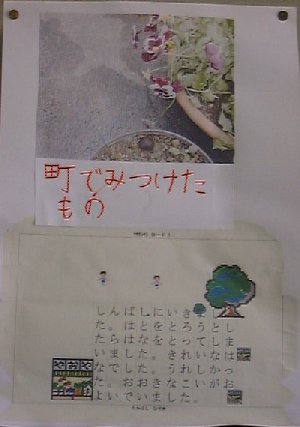 町でみつけた
もの
しんばしにいき
た。はとをとろうとし
たらはなをとってしま
いました。きれいなは
なでした。うれしかっ
た。おおきなこいがお
よいでいました。
やおや